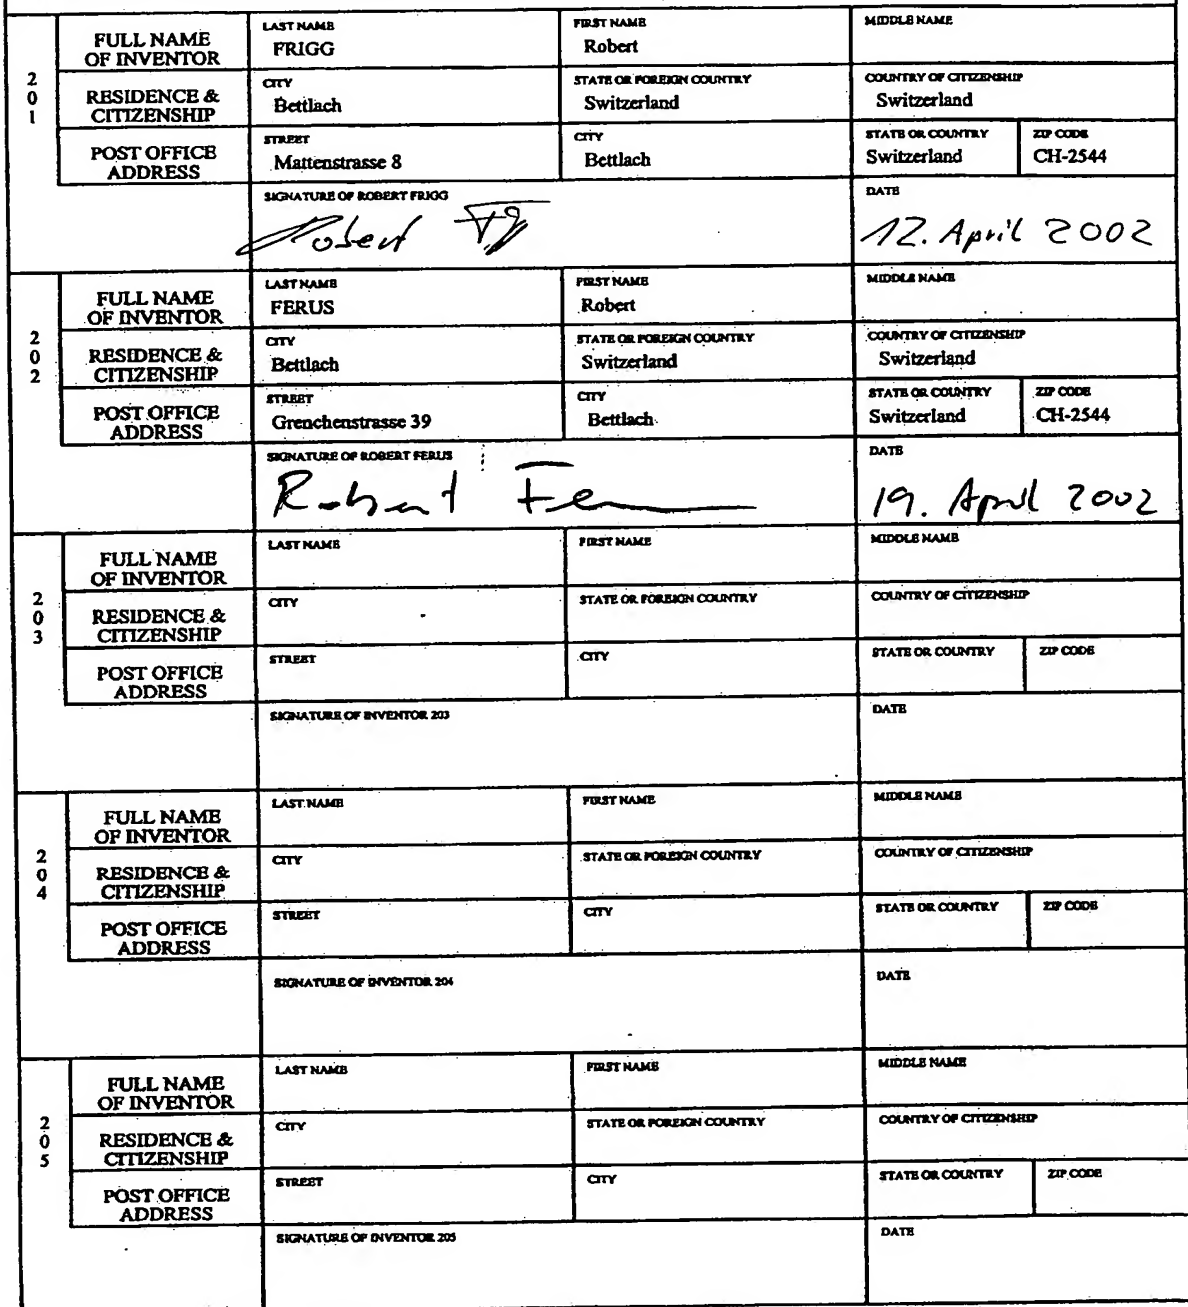 201
FULL NAME OF INVENTOR
LAST NAME
FRIGG
FIRST NAME
Robert
MIDDLE NAME
RESIDENCE & CITIZENSHIP
CITY
Bettlach
STATE OR FOREIGN COUNTRY
Switzerland
COUNTRY OF CITIZENSHIP
Switzerland
POST OFFICE ADDRESS
STREET
Mattenstrasse 8
CITY
Bettlach
STATE OR COUNTRY
Switzerland
ZIP CODE
CH-2544
SIGNATURE OF ROBERT FRIGG
Robert
DATE
12. April 2002
202
FULL NAME OF INVENTOR
LAST NAME
FERUS
FIRST NAME
Robert
MIDDLE NAME
RESIDENCE & CITIZENSHIP
CITY
Bettlach
STATE OR FOREIGN COUNTRY
Switzerland
COUNTRY OF CITIZENSHIP
Switzerland
POST OFFICE ADDRESS
STREET
Grenchenstrasse 39
CITY
Bettlach
STATE OR COUNTRY
Switzerland
ZIP CODE
CH-2544
SIGNATURE OF ROBERT FERUS
Robert
DATE
19. April 2002
203
FULL NAME OF INVENTOR
LAST NAME
FIRST NAME
MIDDLE NAME
RESIDENCE & CITIZENSHIP
CITY
STATE OR FOREIGN COUNTRY
COUNTRY OF CITIZENSHIP
POST OFFICE ADDRESS
STREET
CITY
STATE OR COUNTRY
ZIP CODE
SIGNATURE OF INVENTOR 203
DATE
204
FULL NAME OF INVENTOR
LAST NAME
FIRST NAME
MIDDLE NAME
RESIDENCE & CITIZENSHIP
CITY
STATE OR FOREIGN COUNTRY
COUNTRY OF CITIZENSHIP
POST OFFICE ADDRESS
STREET
CITY
STATE OR COUNTRY
ZIP CODE
SIGNATURE OF INVENTOR 204
DATE
205
FULL NAME OF INVENTOR
LAST NAME
FIRST NAME
MIDDLE NAME
RESIDENCE & CITIZENSHIP
CITY
STATE OR FOREIGN COUNTRY
COUNTRY OF CITIZENSHIP
POST OFFICE ADDRESS
STREET
CITY
STATE OR COUNTRY
ZIP CODE
SIGNATURE OF INVENTOR 205
DATE